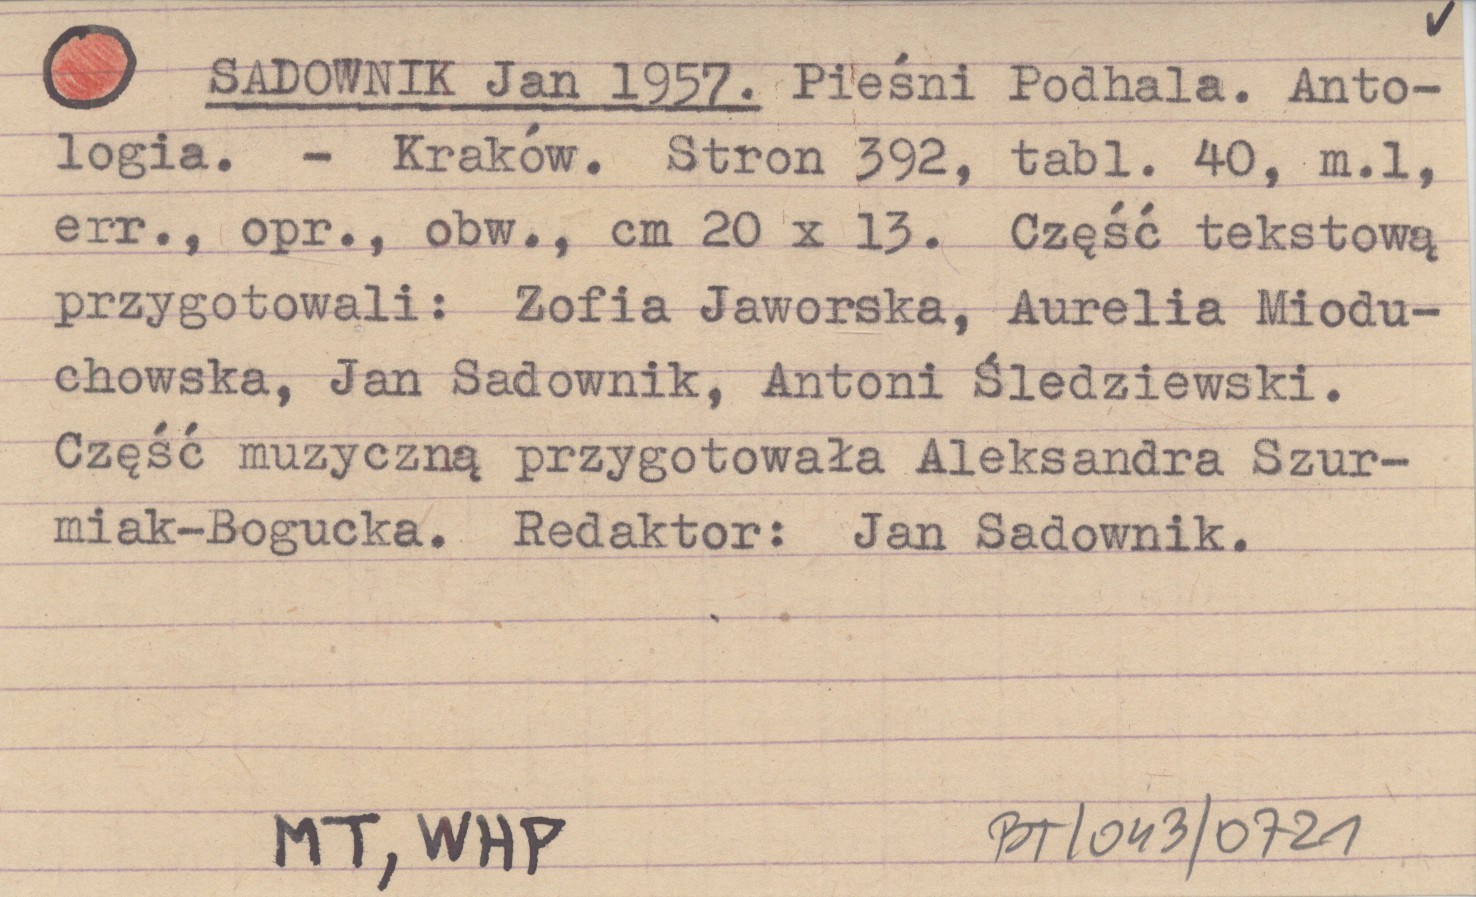 SADOWNIK Jan 1957. Pieśni Podhala. Anto-
logia. - Kraków. Stron 392, tabl. 40, m.1,
err., opr., obw., cm 20 x 13. Część tekstową
przygotowali: Zofia Jaworska, Aurelia Miodu-
chowska, Jan Sadownik, Antoni Śledziewski.
Część muzyczną przygotowała Aleksandra Szur-
miak-Bogucka. Redaktor: Jan Sadownik.
MT, WHP
BT/043/0721